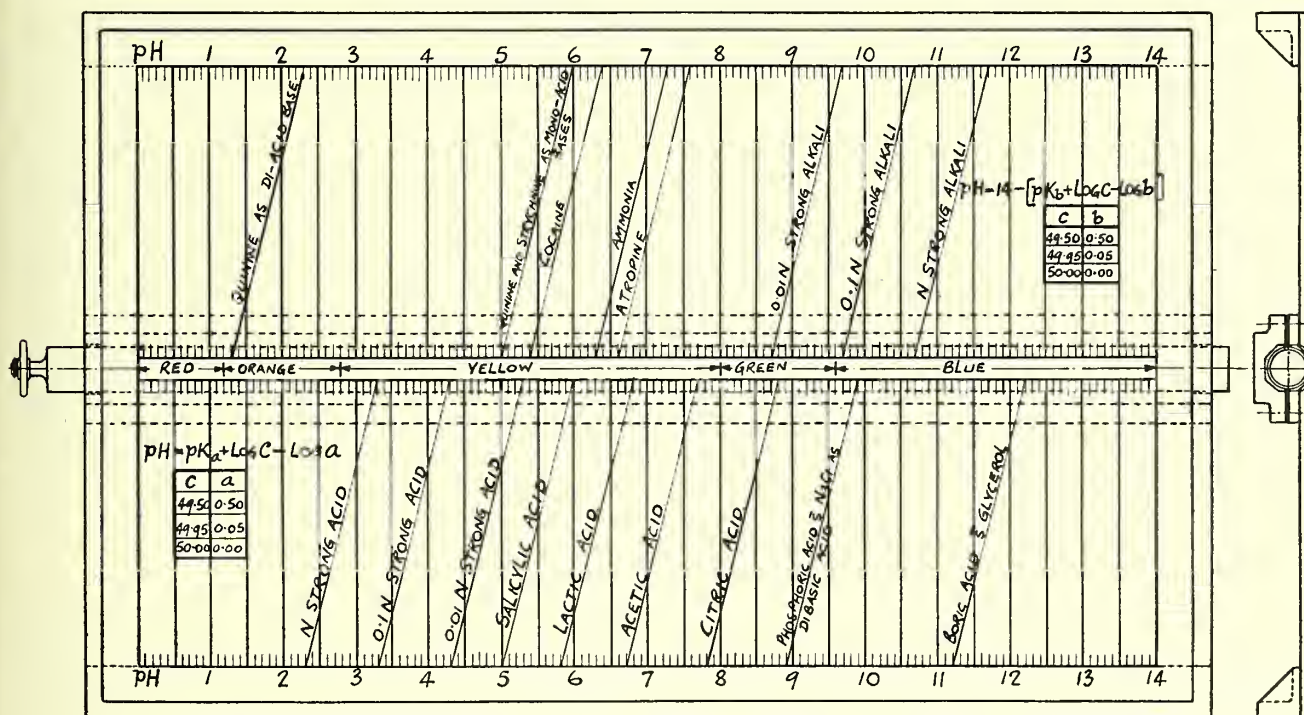 pH 1 2 3 4 5 6 7 8 9 10 11 12 13 14
QUININE AS DI-ACID BASE
QUININE AND STRYCHNINE AS MONO-ACID
BASES
COCAINE
AMMONIA
ATROPINE
0.01N STRONG ALKALI
0.1N STRONG ALKALI
N STRONG ALKALI
pH=14-[pKb+LOGC-LOGb]
C b
49.50 0.50
49.95 0.05
50.00 0.00
RED ORANGE YELLOW GREEN BLUE
pH=pKa+LOGC-LOGa
C a
49.50 0.50
49.95 0.05
50.00 0.00
N STRONG ACID
0.1N STRONG ACID
0.01N STRONG ACID
SALICYLIC ACID
LACTIC ACID
ACETIC ACID
CITRIC ACID
PHOSPHORIC ACID & NaCl AS
DIBASIC ACID
BORIC ACID & GLYCEROL
pH 1 2 3 4 5 6 7 8 9 10 11 12 13 14